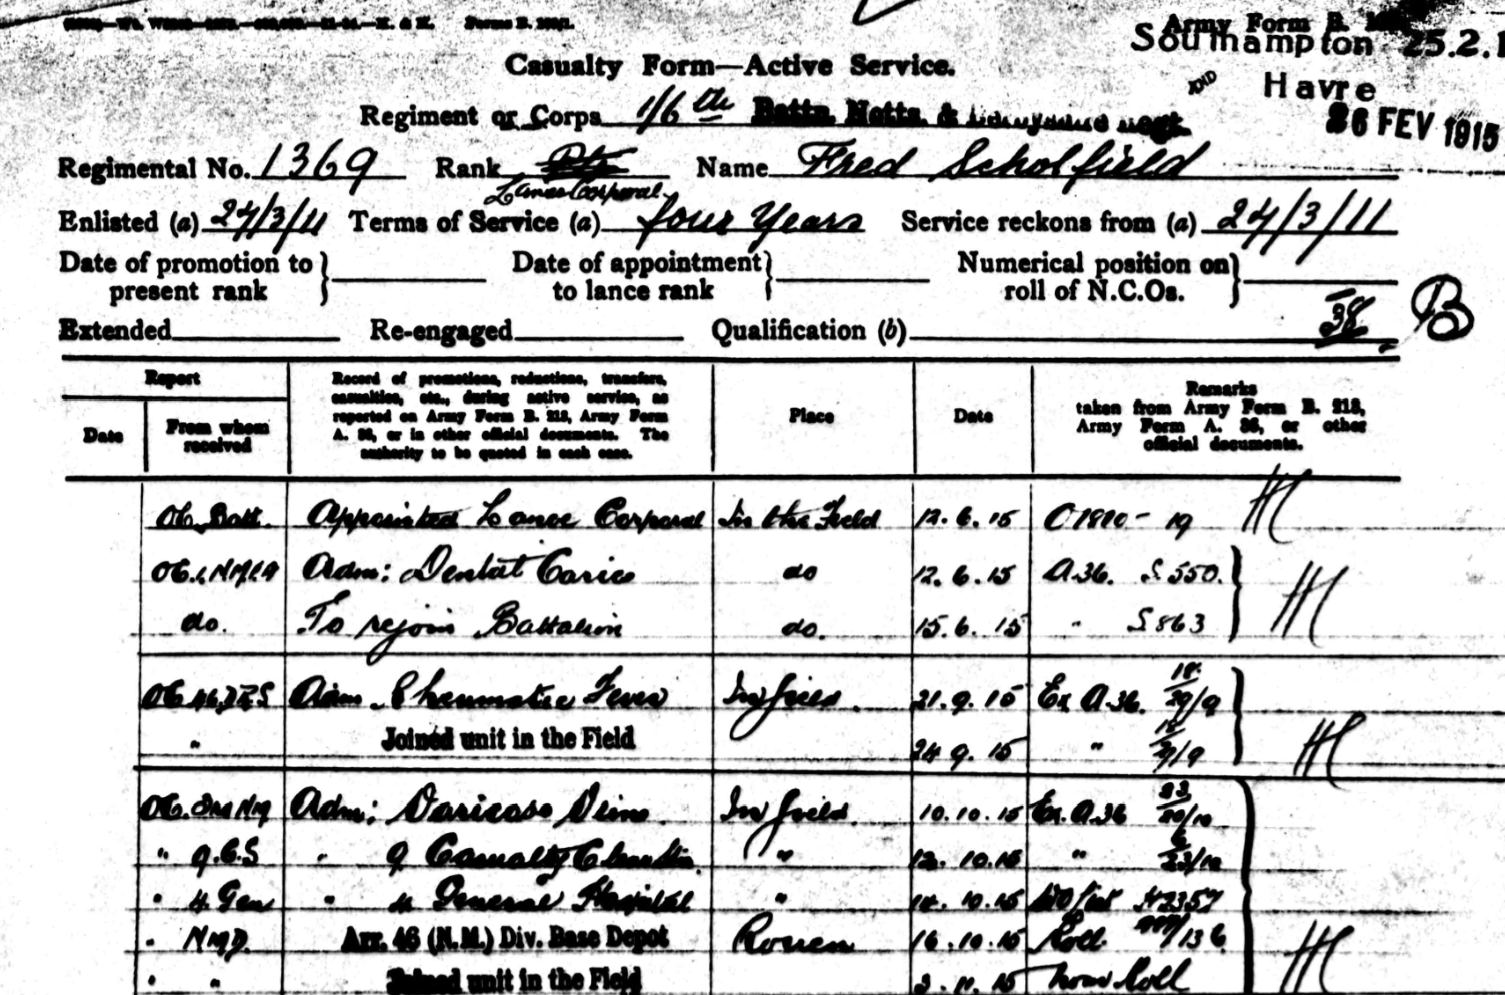 Forms B.
Army Form B.
Southampton 25.2.1
Casualty Form—Active Service.
AND Havre
Regiment or Corps 1/6th Battn. Notts. &
26 FEV 1915
Regimental No. 1369 Rank Pte Name Fred Scholfield
Lance Corporal
Enlisted (a) 24/3/11 Terms of Service (a) four Years Service reckons from (a) 24/3/11
Date of promotion to present rank } Date of appointment to lance rank } Numerical position on roll of N.C.Os. }
38 B
Extended Re-engaged Qualification (b)
Report
Date
From whom received
Record of promotions, reductions, transfers,
casualties, etc., during active service, as
reported on Army Form B. 213, Army Form
A. 36, or in other official documents. The
authority to be quoted in each case.
Place
Date
Remarks
taken from Army Form B. 213,
Army Form A. 36, or other
official documents.
OC Batt. Appointed Lance Corporal In the Field 12.6.15
Adm: Dental Caries do 12.6.15 A36. S 550.
do. To rejoin Battalion do. 15.6.15 " S 863
Adm Rheumatic Fever In field. 21.9.15 Ex A.36.
" Joined unit in the Field 24 9.15 "
Adm: Varicose Veins In field. 10.10.15 Ex. A36
" 9.C.S " 9 Casualty " 12.10.15 "
" 4 Gen " 4 General Hospital " 14.10.15
" Arr. 46 (N.M.) Div. Base Depot Rouen 16.10.15 Roll.
" " Joined unit in the Field 2.11.15 Roll